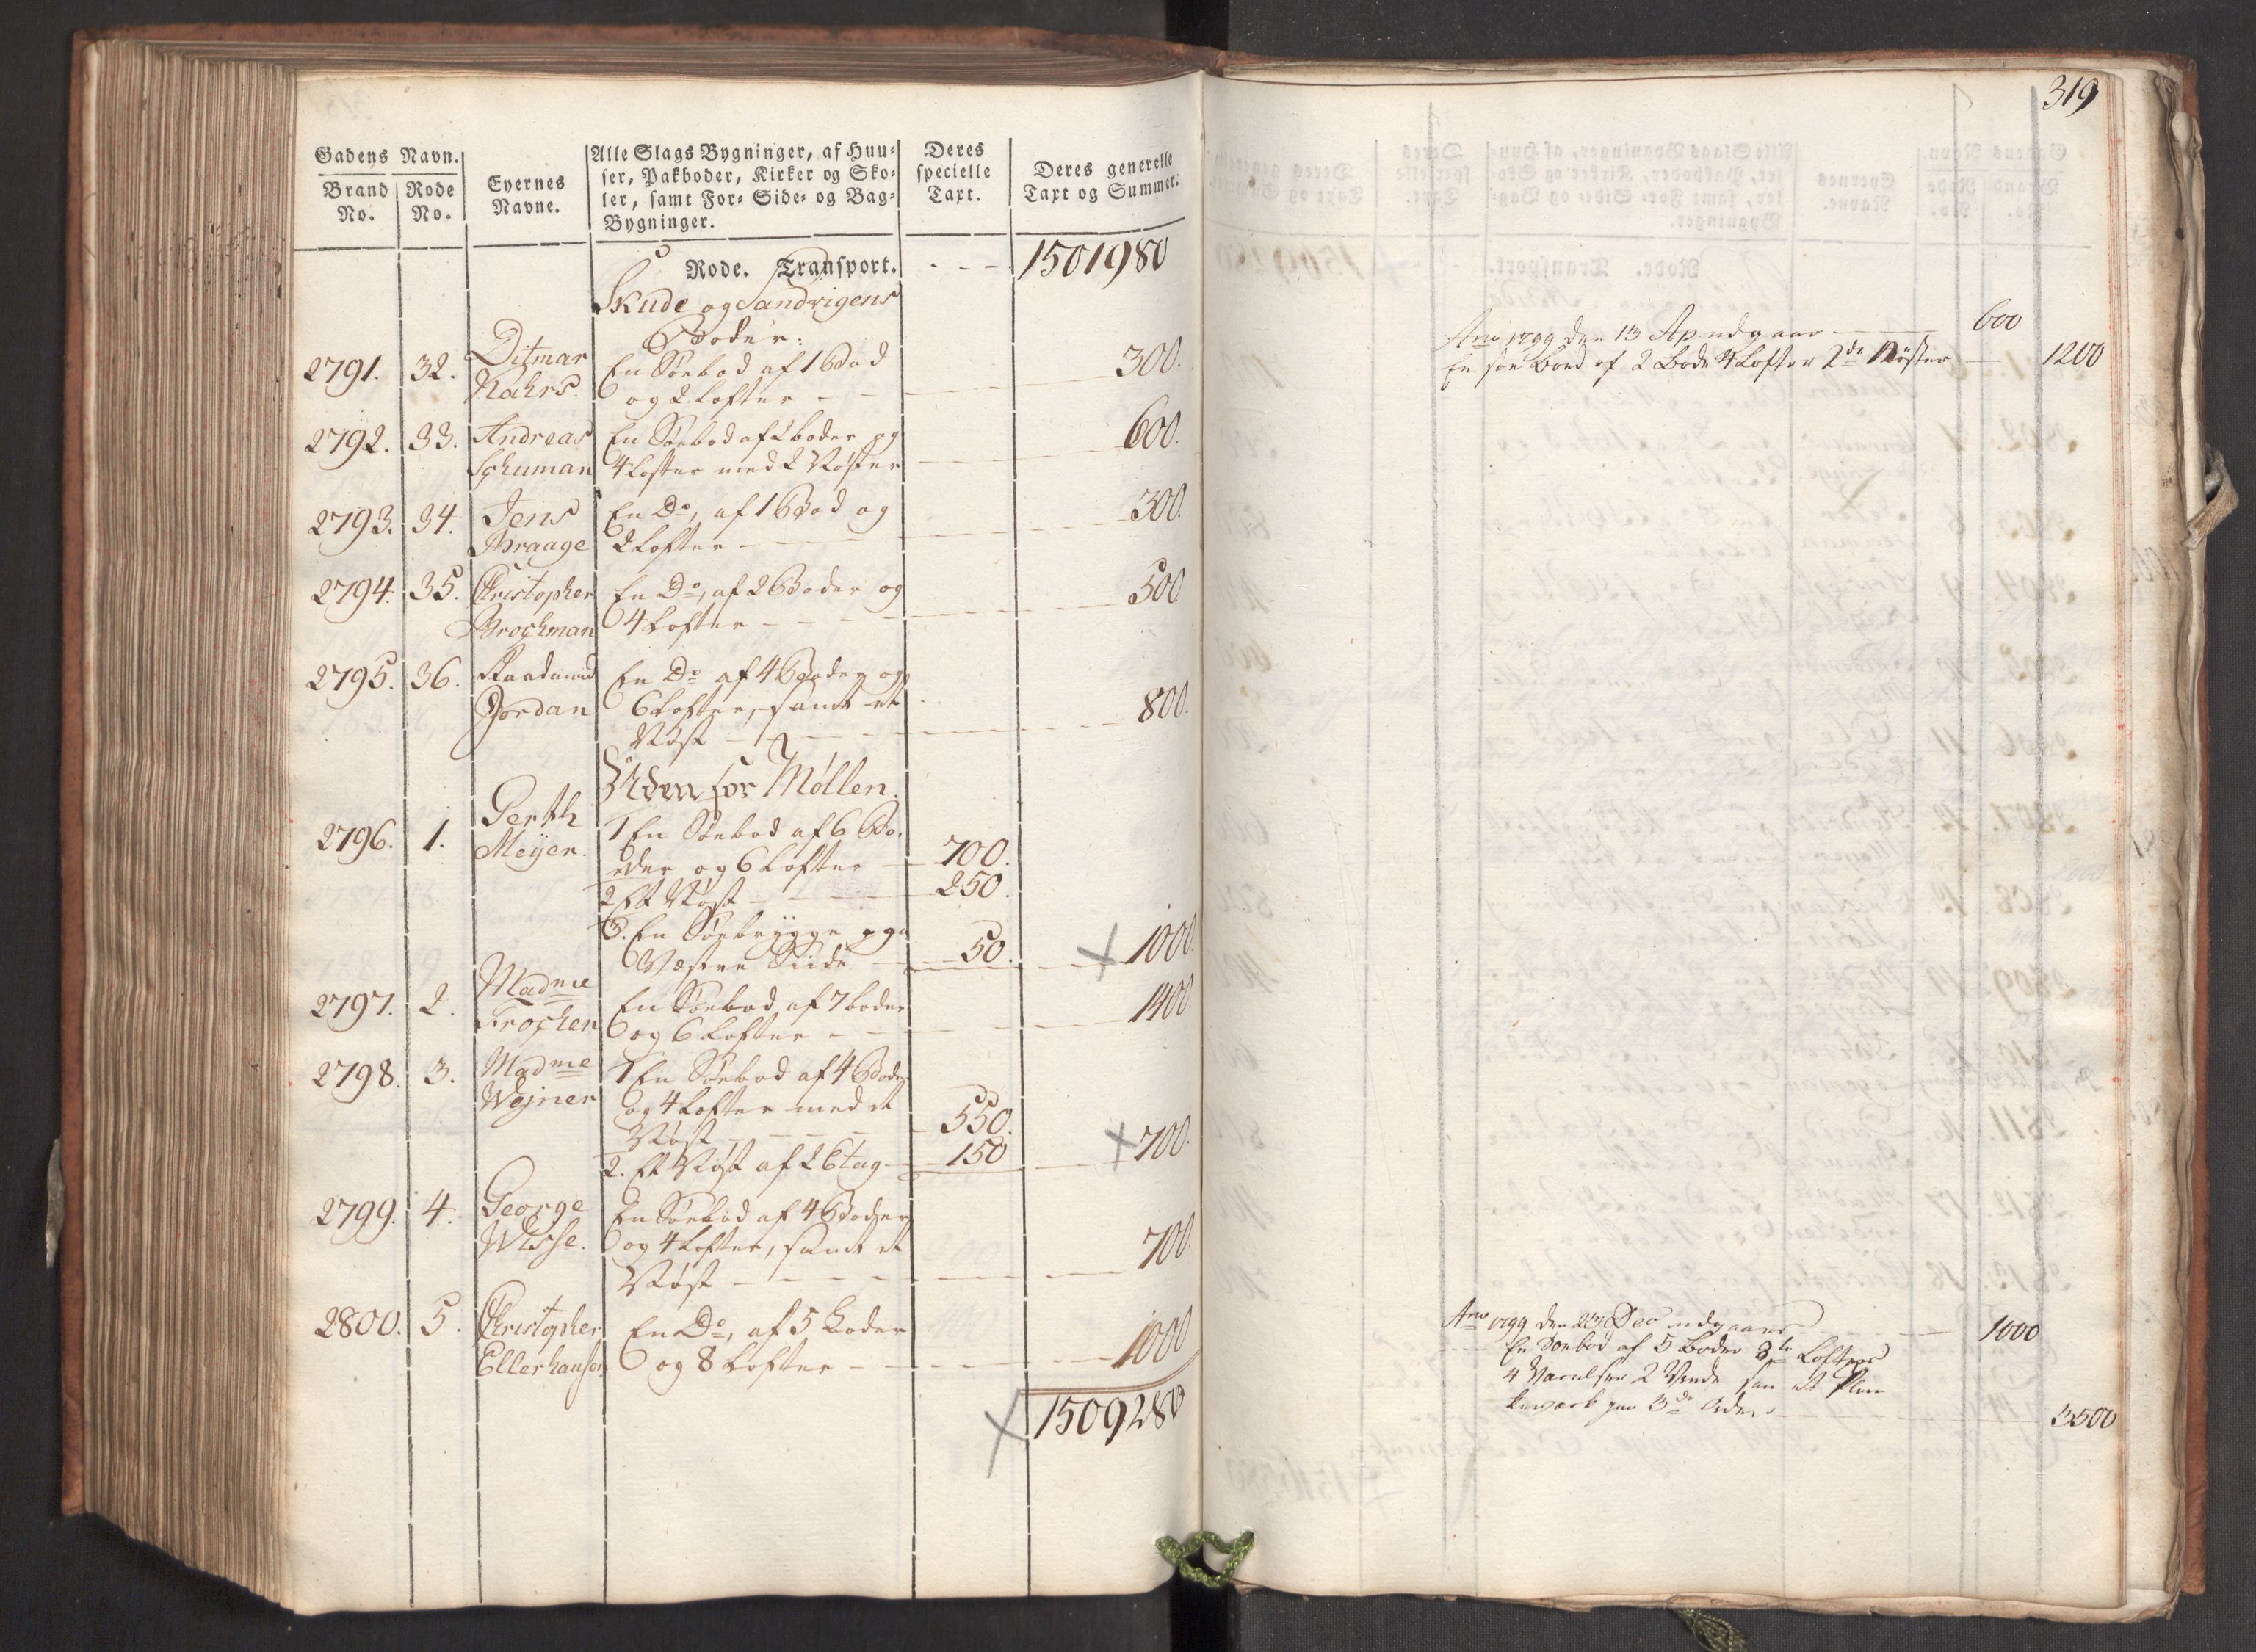 Gadens Navn.
Brand No.
Rode No.
Eyernes Navne.
Alle Slags Bygninger, af Huu-
ser, Pakboder, Kirker og Sko-
ler, samt For- Side- og Bag-
Bygninger.
Deres
specielle
Taxt.
Deres generelle
Taxt og Summer.
Rode. Transport. - - - 1501980
Skude og Sandvigens
Boder:
2791. 32. Ditmar En Søebod af 1 Bod 300.
Kahrs. og 2 Lofter - -
2792. 33. Andreas En Søebod af 2 boder og 600.
Schuman 4 Lofter med 2 Nøster
2793. 34. Jens En Do, af 1 Bod og 300.
Braage 2 Lofter - - -
2794. 35. Christopher En Do, af 2 Boder og 500
Brochman 4 Lofter - - -
2795. 36. Raadmand En Do af 4 Boder og
Jordan 6 Lofter, samt et 800.
Nøst - - -
Uden for Møllen.
2796. 1. Gerth 1 En Søebod af 6 Bo-
Meÿer. der og 6 Lofter - 700.
2 Et Nøst - - - 250.
3. En Søebrygge paa
Væstre Siide - 50. 1000
2797. 2. Madme En Søebod af 7 boder 1400.
Frochen og 6 Lofter - -
2798. 3. Madme 1 En Søebod af 4 Boder
Wejner og 4 Lofter med et
Nøst - - - 550.
2. Et Nøst af 2 Etag - 150 700.
2799. 4. George En Søebod af 4 Boder
Wisse. og 4 Lofter, samt et 700.
Nøst - - - -
2800. 5. Christopher En Do, af 5 Boder 1000
Ellerhausen og 8 Lofter - -
1509280
319
Ano 1799 den 13 Ap udgaar - - 600
En søe Boed af 2 Bode 4 Lofter 2de Nøster - 1200
Ano 1799 den 23 Dec udgaar - - 1000
En Søebod af 5 Boder 8te Lofter
4 2 Vinde samt et Plan
keværk paa 3de Sider 3500